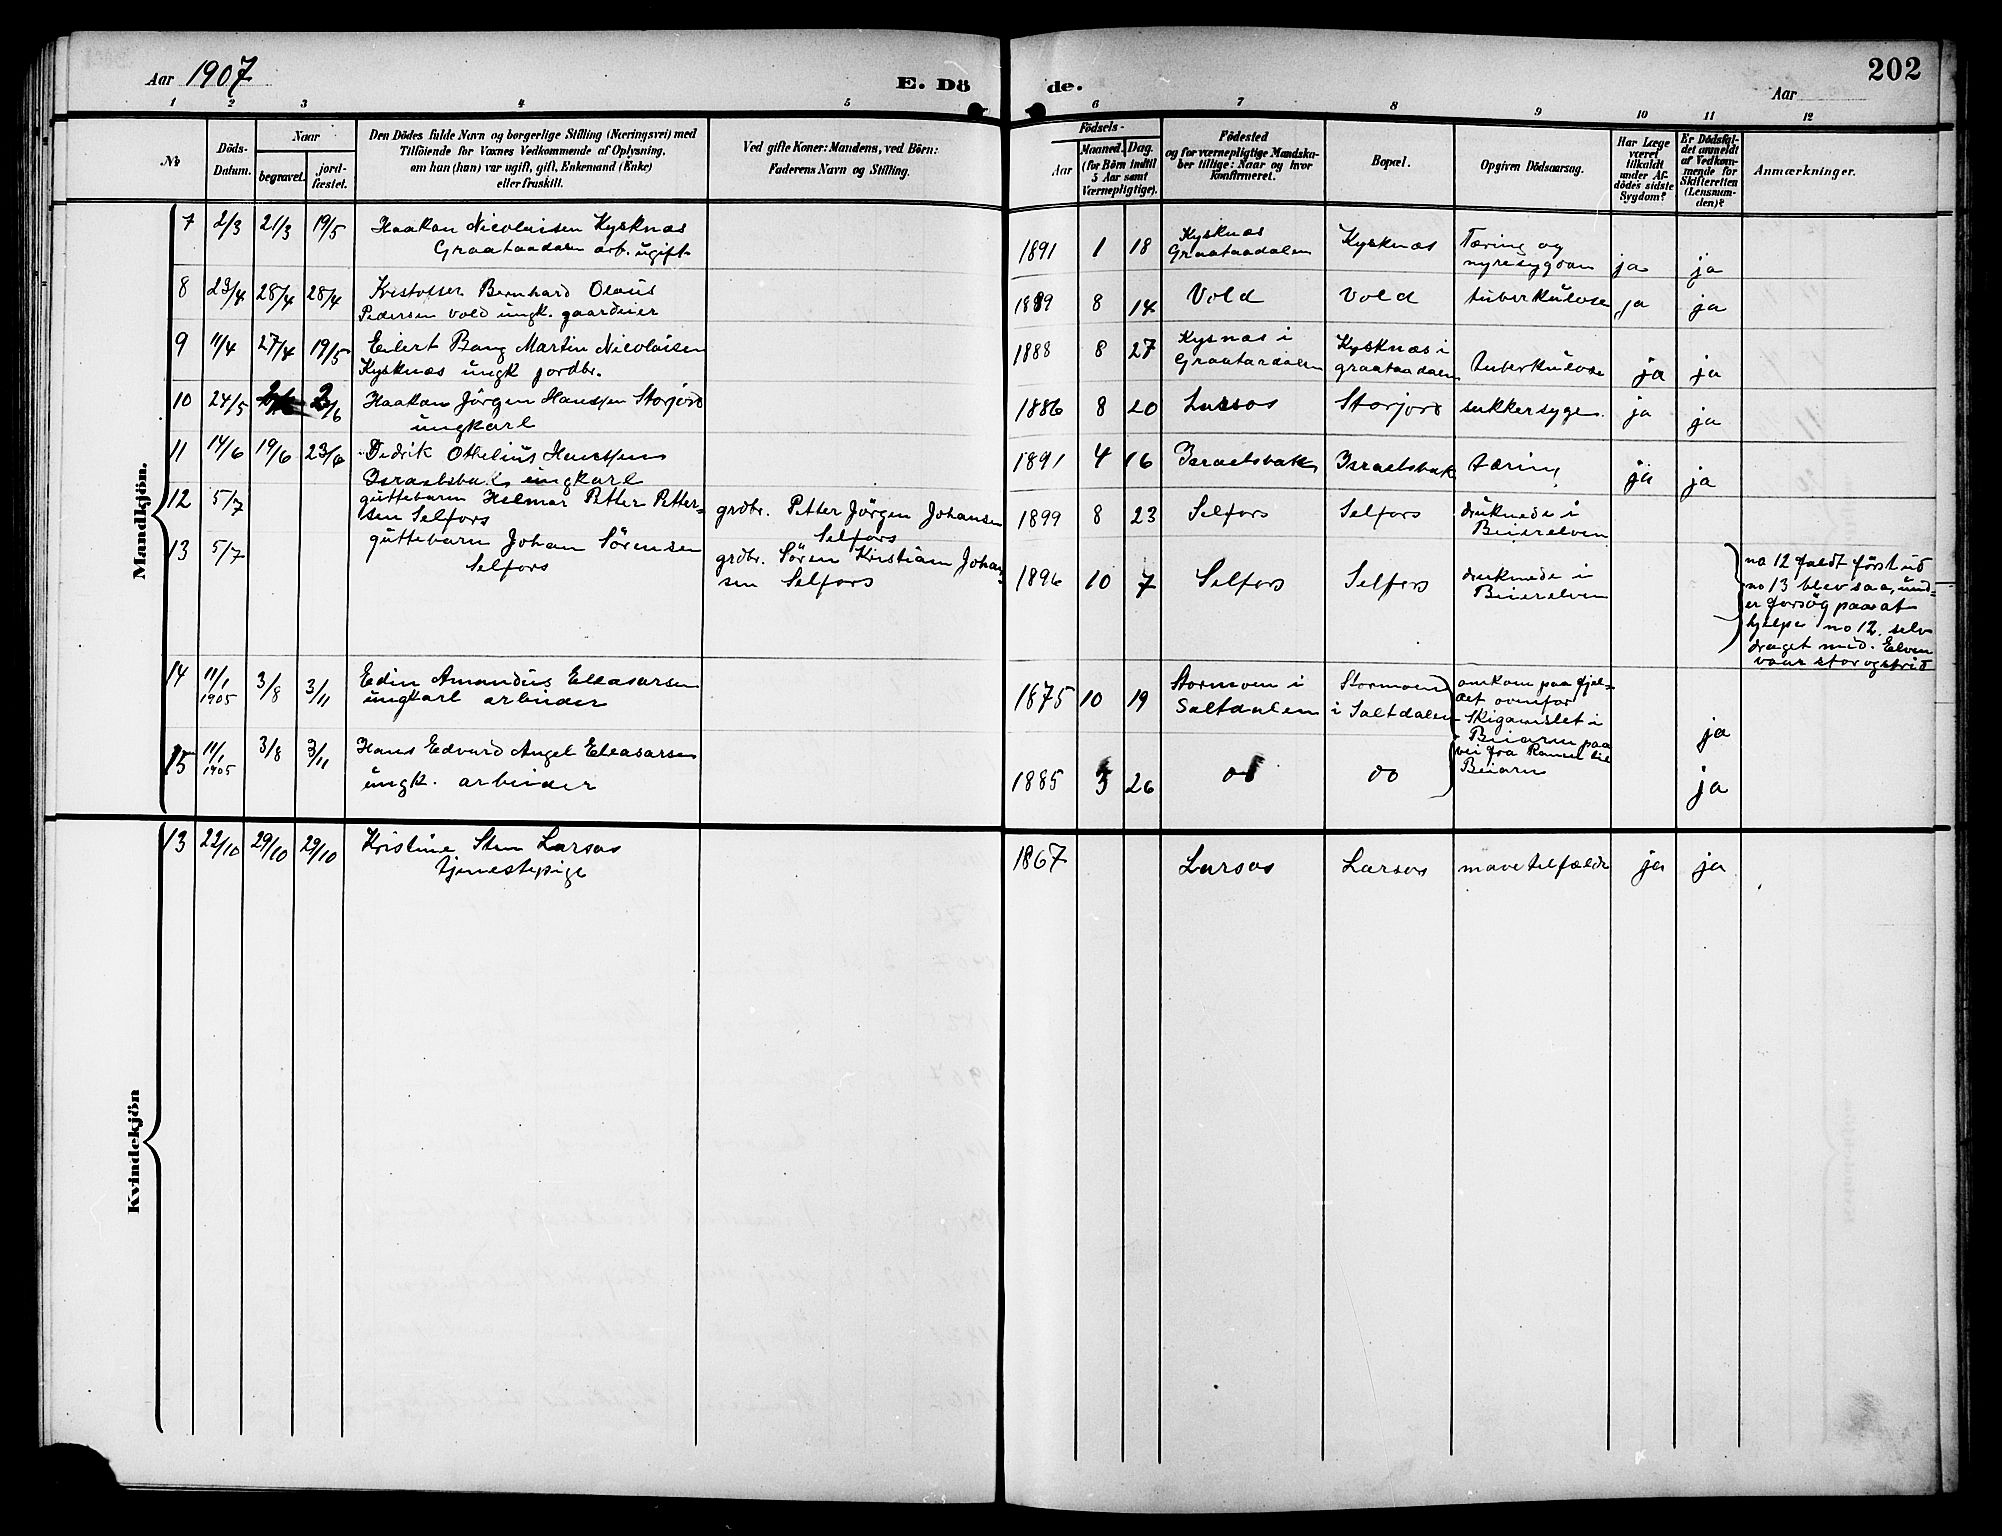 Aar 1907
E. Dö
de.
Aar
202
1 2 3 4 5 6 7 8 9 10 11 12
No
Döds-
Datum.
Naar
begravet.
jord-
fæstet.
Den Dödes fulde Navn og borgerlige Stilling (Næringsvei) med
Tilföiende for Voxnes Vedkommende af Oplysning,
om han (hun) var ugift, gift, Enkemand (Enke)
eller fraskilt.
Ved gifte Koner: Mandens, ved Börn:
Faderens Navn og Stilling.
Födsels-
Aar
Maaned.
Dag.
(for Börn indtil
5 Aar samt
Værnepligtige).
Födested
og for værnepligtige Mandska-
ber tillige: Naar og hvor
konfirmeret.
Bopæl.
Opgiven Dödsaarsag.
Har Læge
været
tilkaldt
under Af-
dödes sidste
Sygdom?
Er Dödsfal-
det anmeldt
af Vedkom-
mende for
Skifteretten
(Lensman-
den)?
Anmærkninger.
Mandkjön.
7 2/3 21/3 19/5 Haakon Nicolaisen Kysknæs
Graataadalen arb. ugift
1891 1 18 Kysknæs
Graataadalen
Kysknæs
Tæring og
nyresygdom
ja ja
8 23/4 28/4 28/4 Kristoffer Bernhard Olaus
Pedersen Vold ungk. gaardeier
1889 8 14 Vold Vold tuberkulose ja ja
9 11/4 27/4 19/5 Eilert Bang Martin Nicolaisen
Kysknæs ungk jordbr.
1888 8 27 Kysnæs i
Graataadalen
Kysknæs i
graataadalen
tuberkulose ja ja
10 24/5 2/6 Haakon Jörgen Hanssen Storjord
ungkarl
1886 8 20 Larsos Storjord sukkersyge. ja ja
11 14/6 19/6 23/6 Didrik Othelius Hanssen
Israelsbakk ungkarl
1891 4 16 Israelsbakk Israelsbakk tæring ja ja
12 5/7 guttebarn Hilmar Petter Petter-
sen Selfors
grdbr. Petter Jörgen Johansen
Selfors
1899 8 23 Selfors Selfors druknede i
Beierelven
13 5/7 guttebarn Johan Sörensen
Selfors
grdbr. Sören Kristian Johan-
sen Selfors
1896 10 7 Selfors Selfors druknede i
Beierelven
no 12 faldt först ud
no 13 blev saa, und-
er forsög paa at
hjelpe no 12. selv
draget med. Elven
var stor og strid
14 11/1 1905 3/8 3/11 Edin Amandus Eleasarsen
ungkarl arbeider
1875 10 19 Stormoen i
Saltdalen
Stormoen
i Saltdalen
omkom paa fjel-
det ovenfor
Skigamslet i
Beiarn paa
vei fra Ranen til
Beiarn
ja
15 11/1 1905 3/8 3/11 Hans Edvard Angel Eleasarsen
ungk. arbeider
1885 3 26 do do ja
Kvindekjön
13 22/10 29/10 29/10 Kristine Sten Larsos
tjenestepige
1867 Larsos Larsos mavetilfælde ja ja